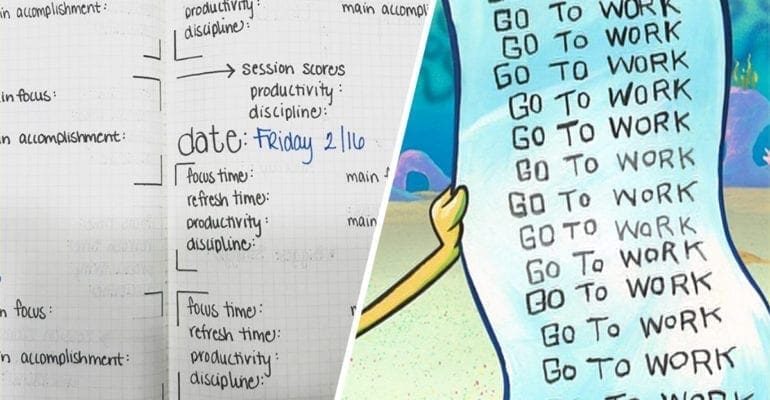 in accomplishment:
in focus:
n accomplishment:
n focus:
n accomplishment:
productivity:
main accompl
discipline:
session scores
productivity:
discipline:
date: Friday 2/16
focus time:
main
refresh time:
productivity:
main
discipline:
focus time:
refresh time:
productivity:
discipline:
GO TO WORK
GO TO WORK
GO TO WORK
GO TO WORK
GO TO WORK
GO TO WORK
GO TO WORK
GO TO WORK
GO TO WORK
GO TO WORK
GO TO WORK
GO TO WORK
TO WORK